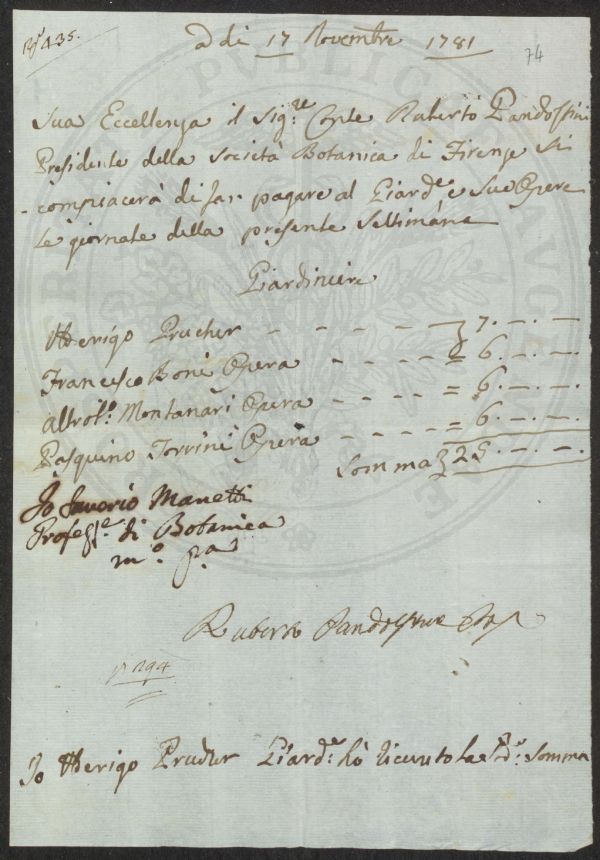 435.
A di 17 Novembre 1781
74
Sua Eccellenza il Sig:re Conte Ruberto Pandolfini
Presidente della Società Botanica di Firenze Si
compiacerà di far pagare al Giard:e e Sue Opere
le giornate della presente Settimana
Giardiniere
Arrigo Prucher - - - - - - 7. -. -.
Francesco Boni Opera - - - - = 6. -. -.
Altro f:o Montanari Opera - - - - = 6. -. -.
Pasquino Torrini Opera - - - - = 6. -. -.
Somma 25. -. -.
Io Saverio Manetti
Profess:e di Botanica
m:o p:a
Ruberto Pandolfini
294
Io Arrigo Prucher Giard:e hò ricevuto la Sd:a Somma